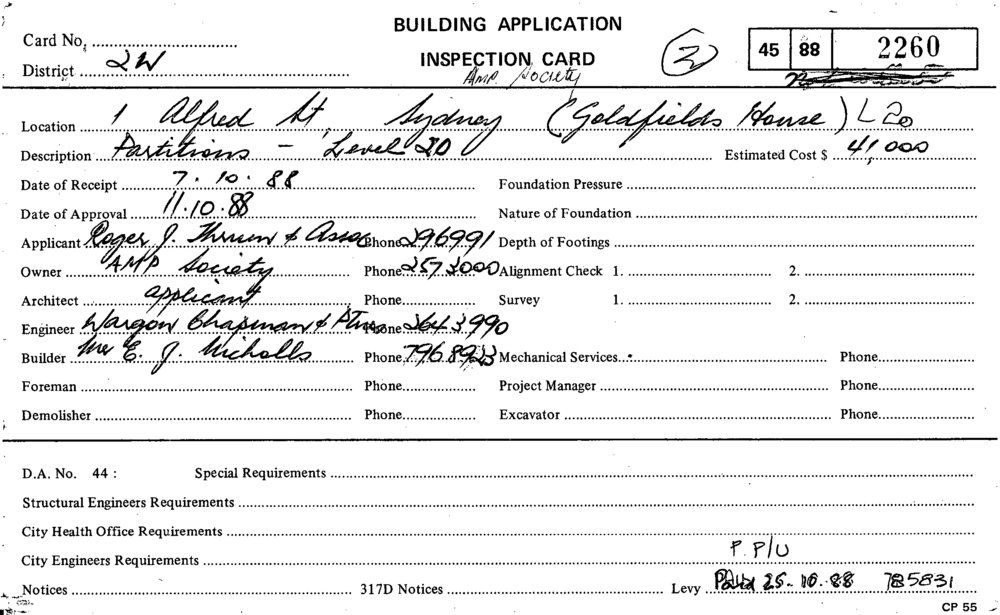 BUILDING APPLICATION
INSPECTION CARD
Card No. ..........
District .......... 2W
AMP. Society
2
45 88 2260
Location 1 Alfred St, Sydney (Goldfields House) L20
Description Partitions - Level 20 Estimated Cost $ 41,000
Date of Receipt 7. 10. 88 Foundation Pressure
Date of Approval 11.10.88 Nature of Foundation
Applicant Roger J. & Assoc Phone 296991 Depth of Footings
Owner AMP Society Phone 257 3000 Alignment Check 1. 2.
Architect applicant Phone Survey 1. 2.
Engineer Wargon Chapman & Ptnrs Phone 264 3990
Builder Mr E. J. Nicholls Phone 796 8923 Mechanical Services Phone
Foreman Phone Project Manager Phone
Demolisher Phone Excavator Phone
D.A. No. 44 : Special Requirements
Structural Engineers Requirements
City Health Office Requirements
City Engineers Requirements
P. P/U
Notices 317D Notices Levy Paid 25. 10. 88 785831
CP 55